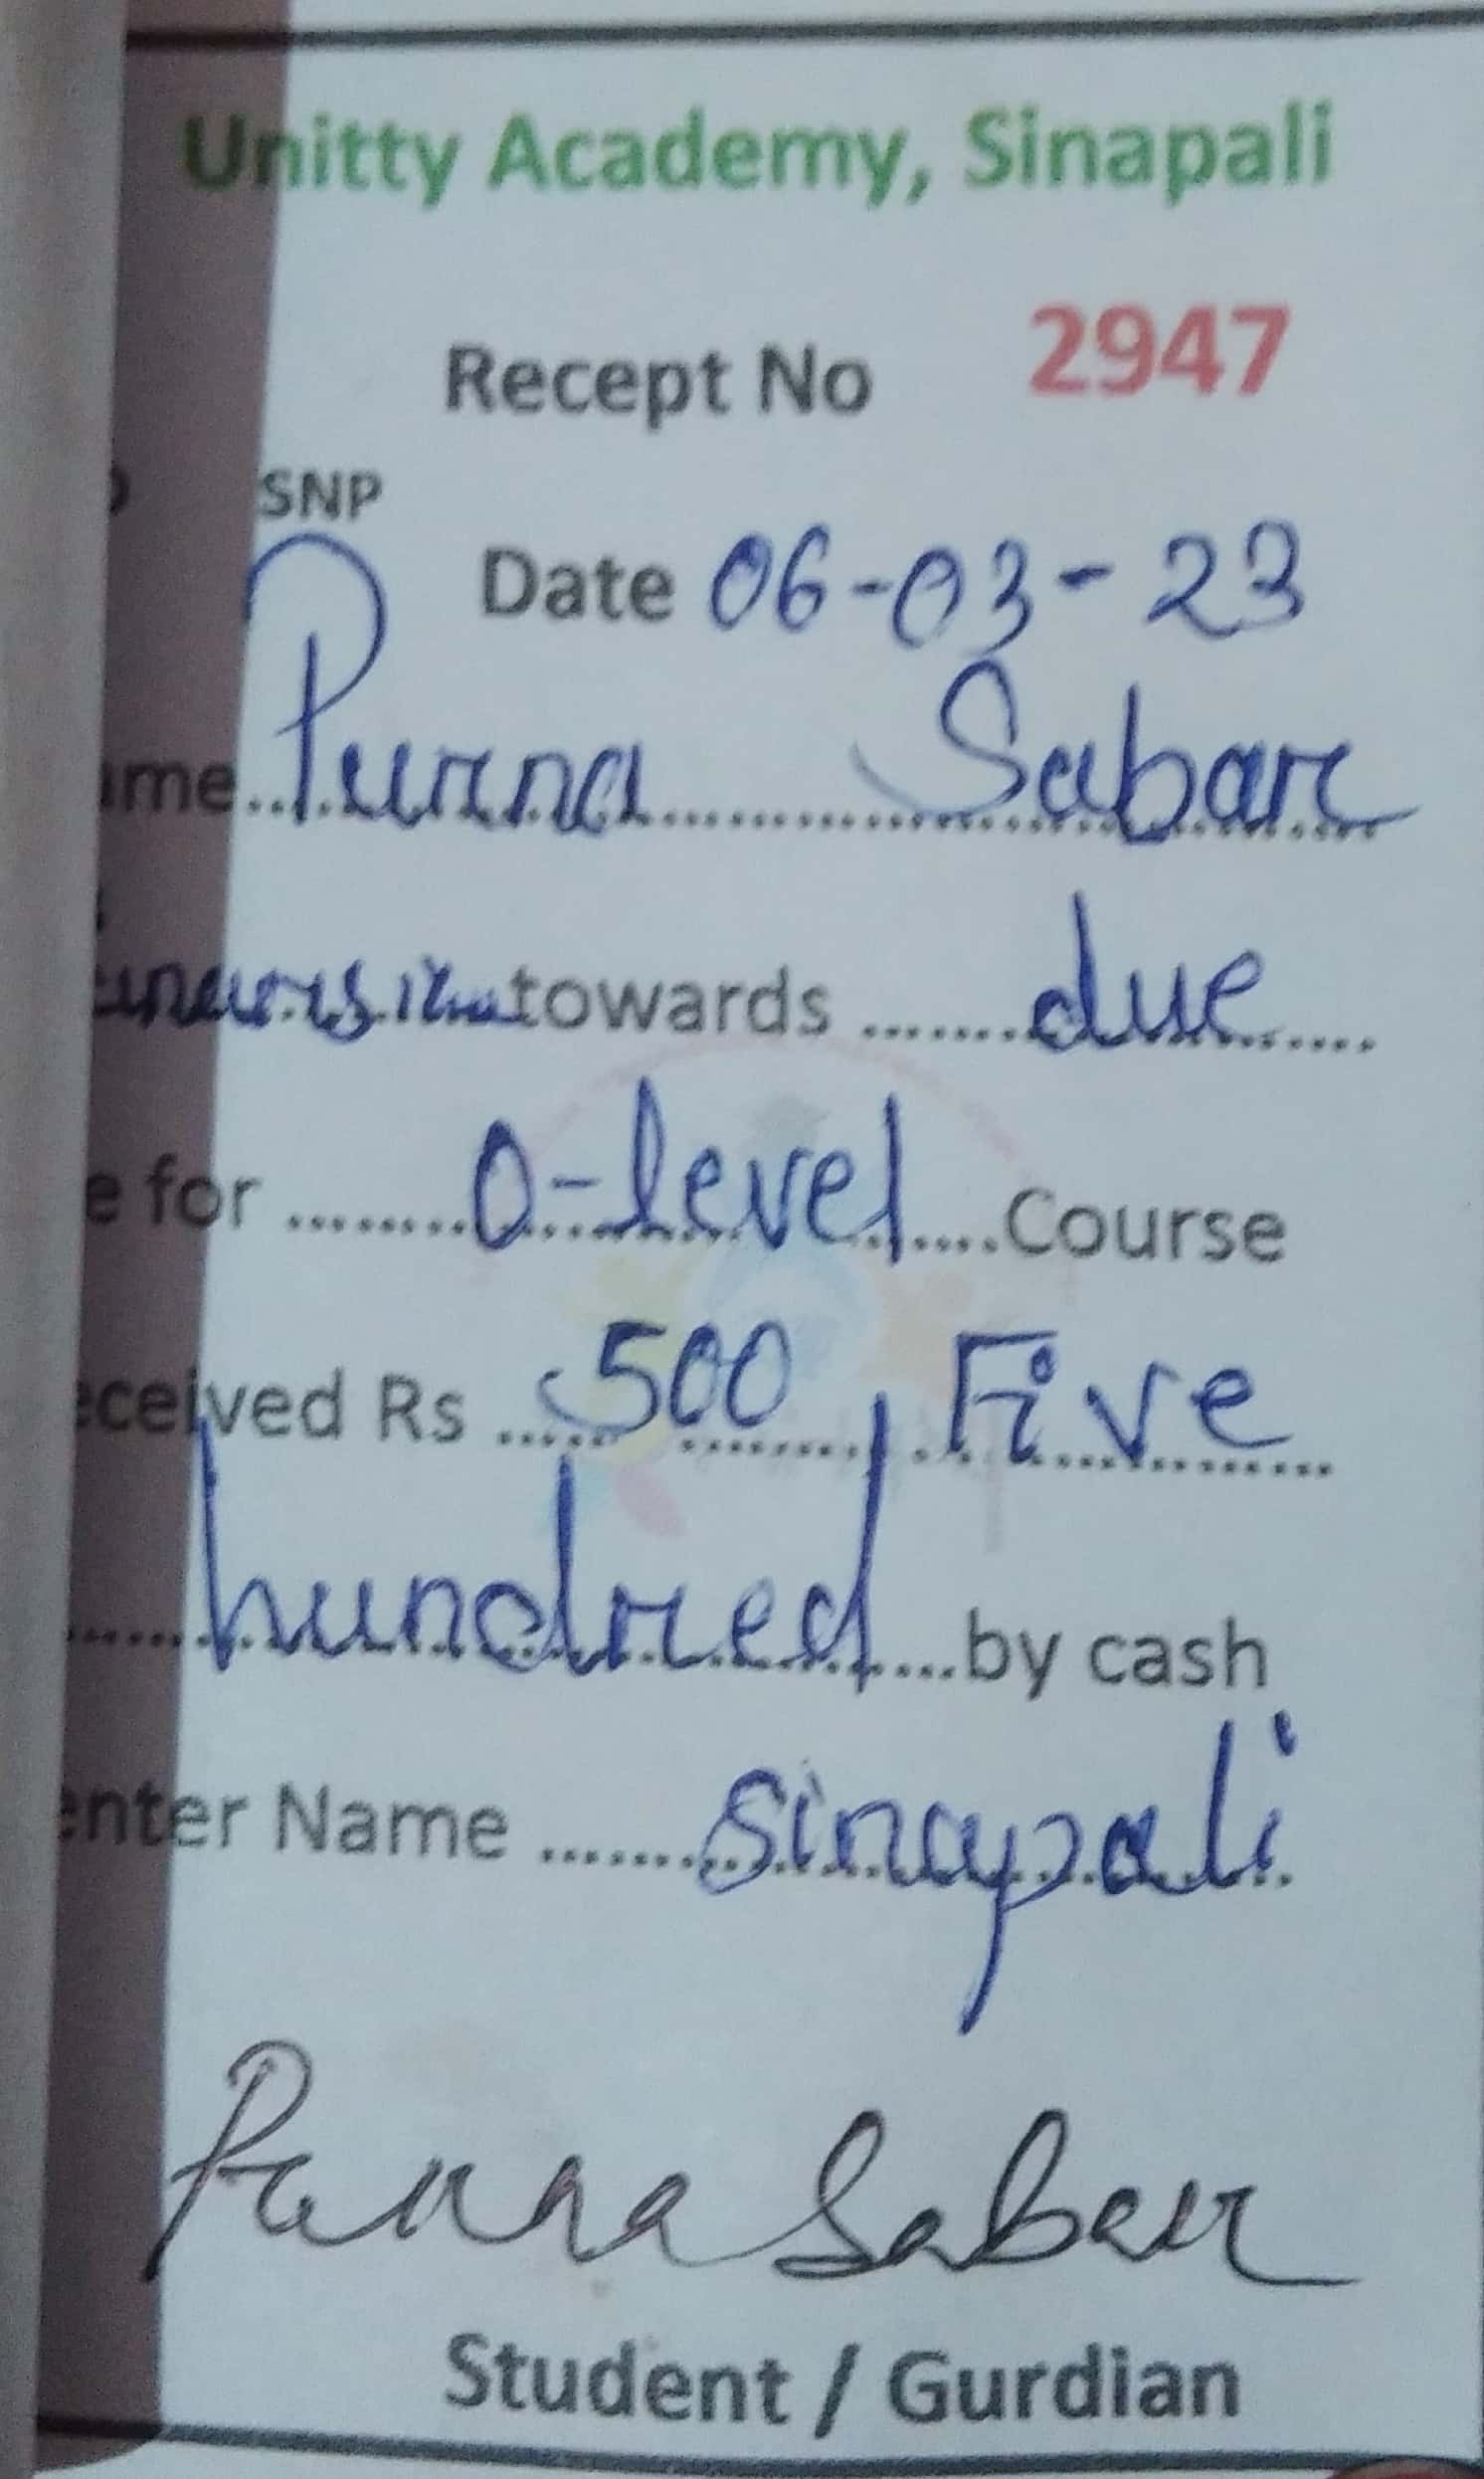 Unitty Academy, Sinapali
Recept No 2947
SNP
Date 06-03-23
ame Purna Sabar
towards due
e for O-level Course
eceived Rs 500, Five
hundred by cash
enter Name Sinapali
Purna Sabar
Student / Gurdian